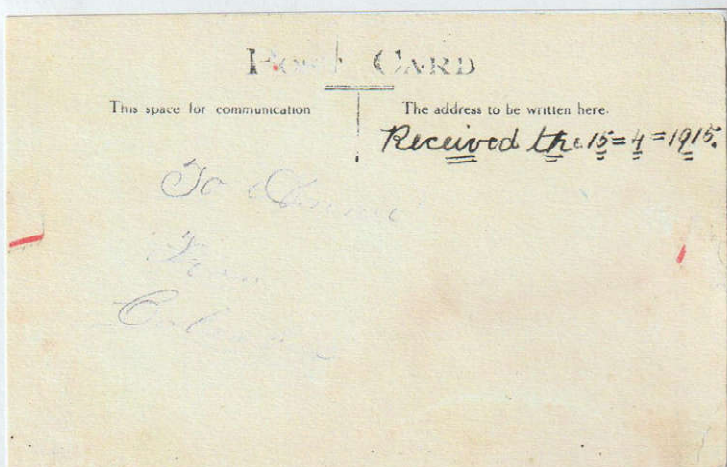 POST CARD
This space for communication
The address to be written here.
Received the 15=4=1915.
To
From